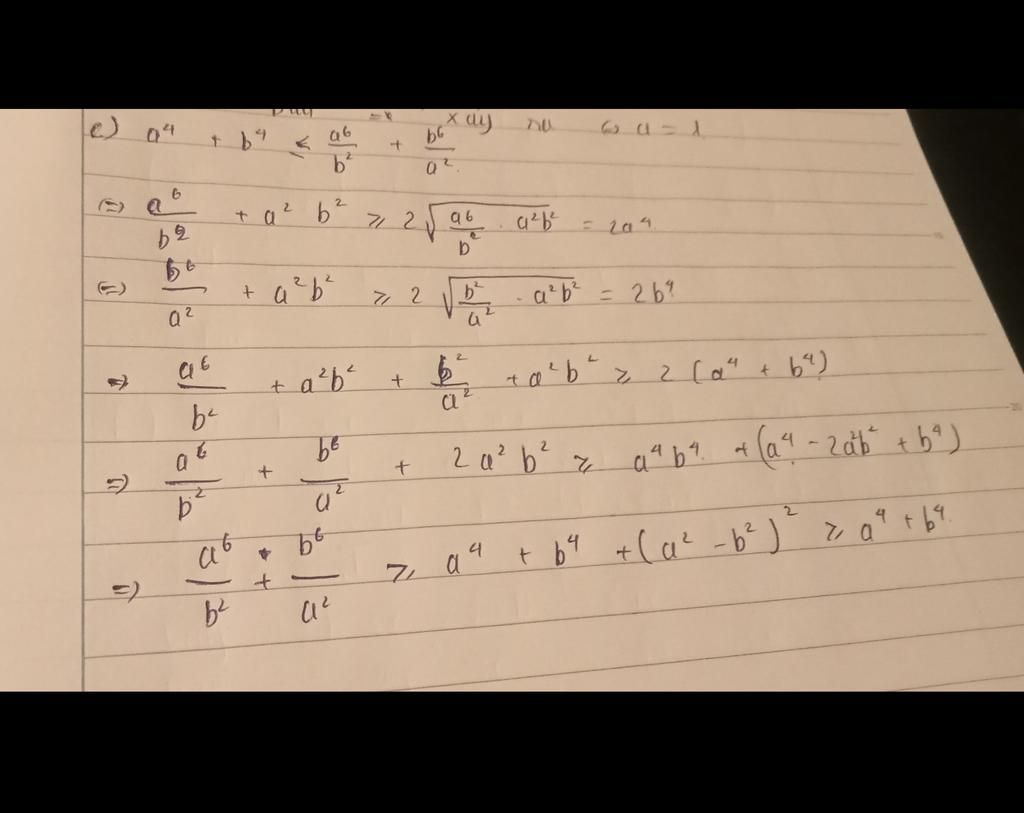 xảy ra <=> a = 1
e) a⁴ + b⁴ ≤ a⁶/b² + b⁶/a²
(=) a⁶/b² + a² b² ≥ 2√(a⁶/b² . a²b²) = 2a⁴
(=) b⁶/a² + a²b² ≥ 2√(b²/a² . a²b²) = 2b⁴
=) a⁶/b² + a²b² + b²/a² + a²b² ≥ 2(a⁴ + b⁴)
=) a⁶/b² + b⁶/a² + 2a²b² ≥ a⁴b⁴ + (a⁴ - 2a²b² + b⁴)
=) a⁶/b² + b⁶/a² ≥ a⁴ + b⁴ + (a² - b²)² ≥ a⁴ + b⁴